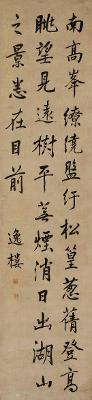 南高峯繚繞盤紆松篁蔥蒨登高
眺望見遠樹平蕪煙消日出湖山
之景悉在目前
逸樓